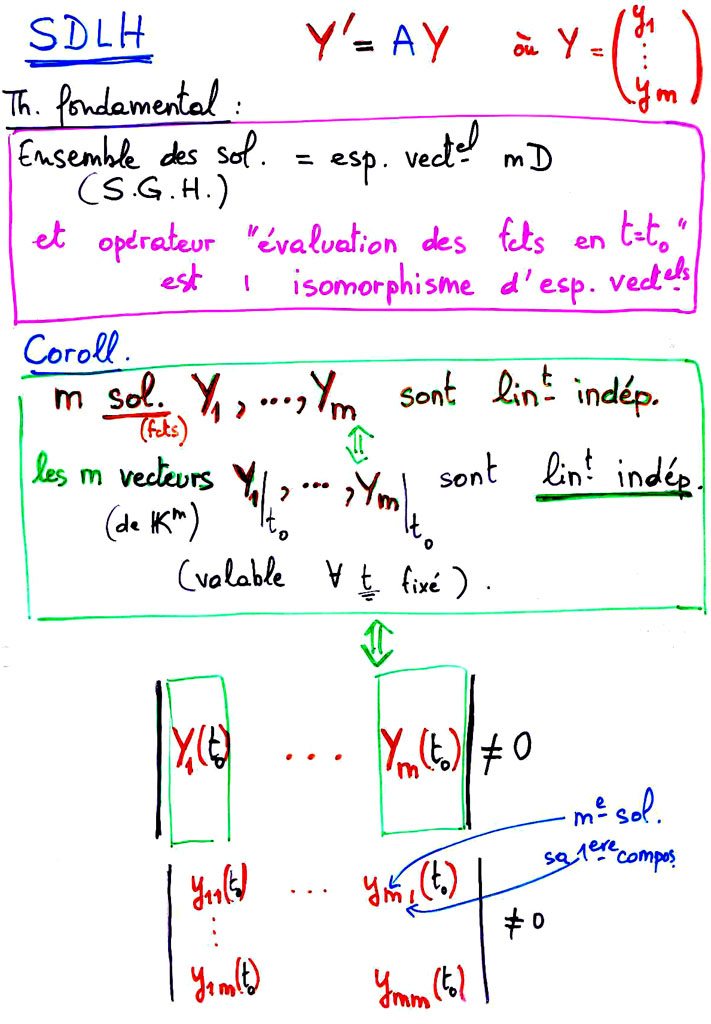 SDLH Y' = A Y où Y = (y1 ⋮ ym)
Th. fondamental :
Ensemble des sol. = esp. vectel mD
(S.G.H.)
et opérateur "évaluation des fcts en t=t0"
est 1 isomorphisme d'esp. vectels
Coroll.
m sol. Y1, ..., Ym sont lint indép.
(fcts)
⇕
les m vecteurs Y1|t0, ..., Ym|t0 sont lint indép.
(de 𝕂m)
(valable ∀ t fixé).
⇕
| Y1(t0) ... Ym(t0) | ≠ 0
me sol.
sa 1ere compos
| y11(t0) ... ym1(t0) |
⋮ ≠ 0
| y1m(t0) ymm(t0) |